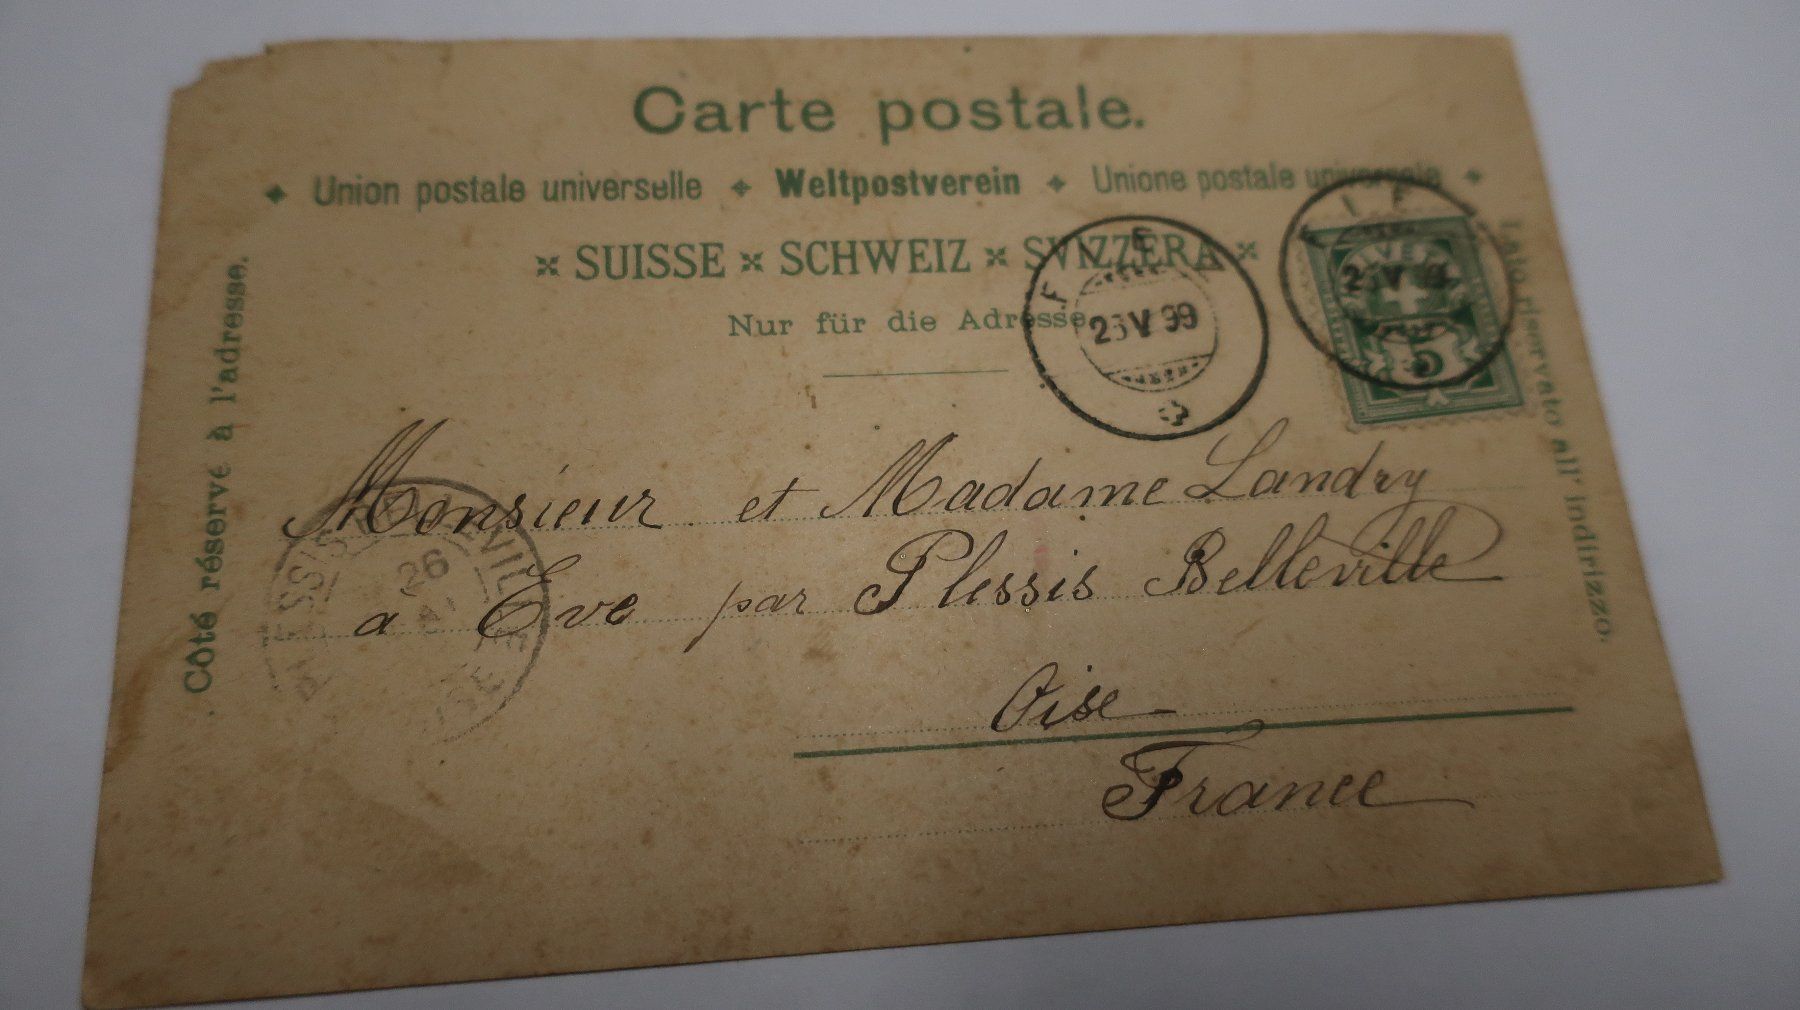 Carte postale.
Union postale universelle Weltpostverein Unione postale universale
SUISSE SCHWEIZ SVIZZERA
Nur für die Adresse
Côté réservé à l'adresse.
Lato riservato all' indirizzo.
V 99
HELVETIA
5
Monsieur et Madame Landry
a Eve par Plessis Belleville
Oise
France
26